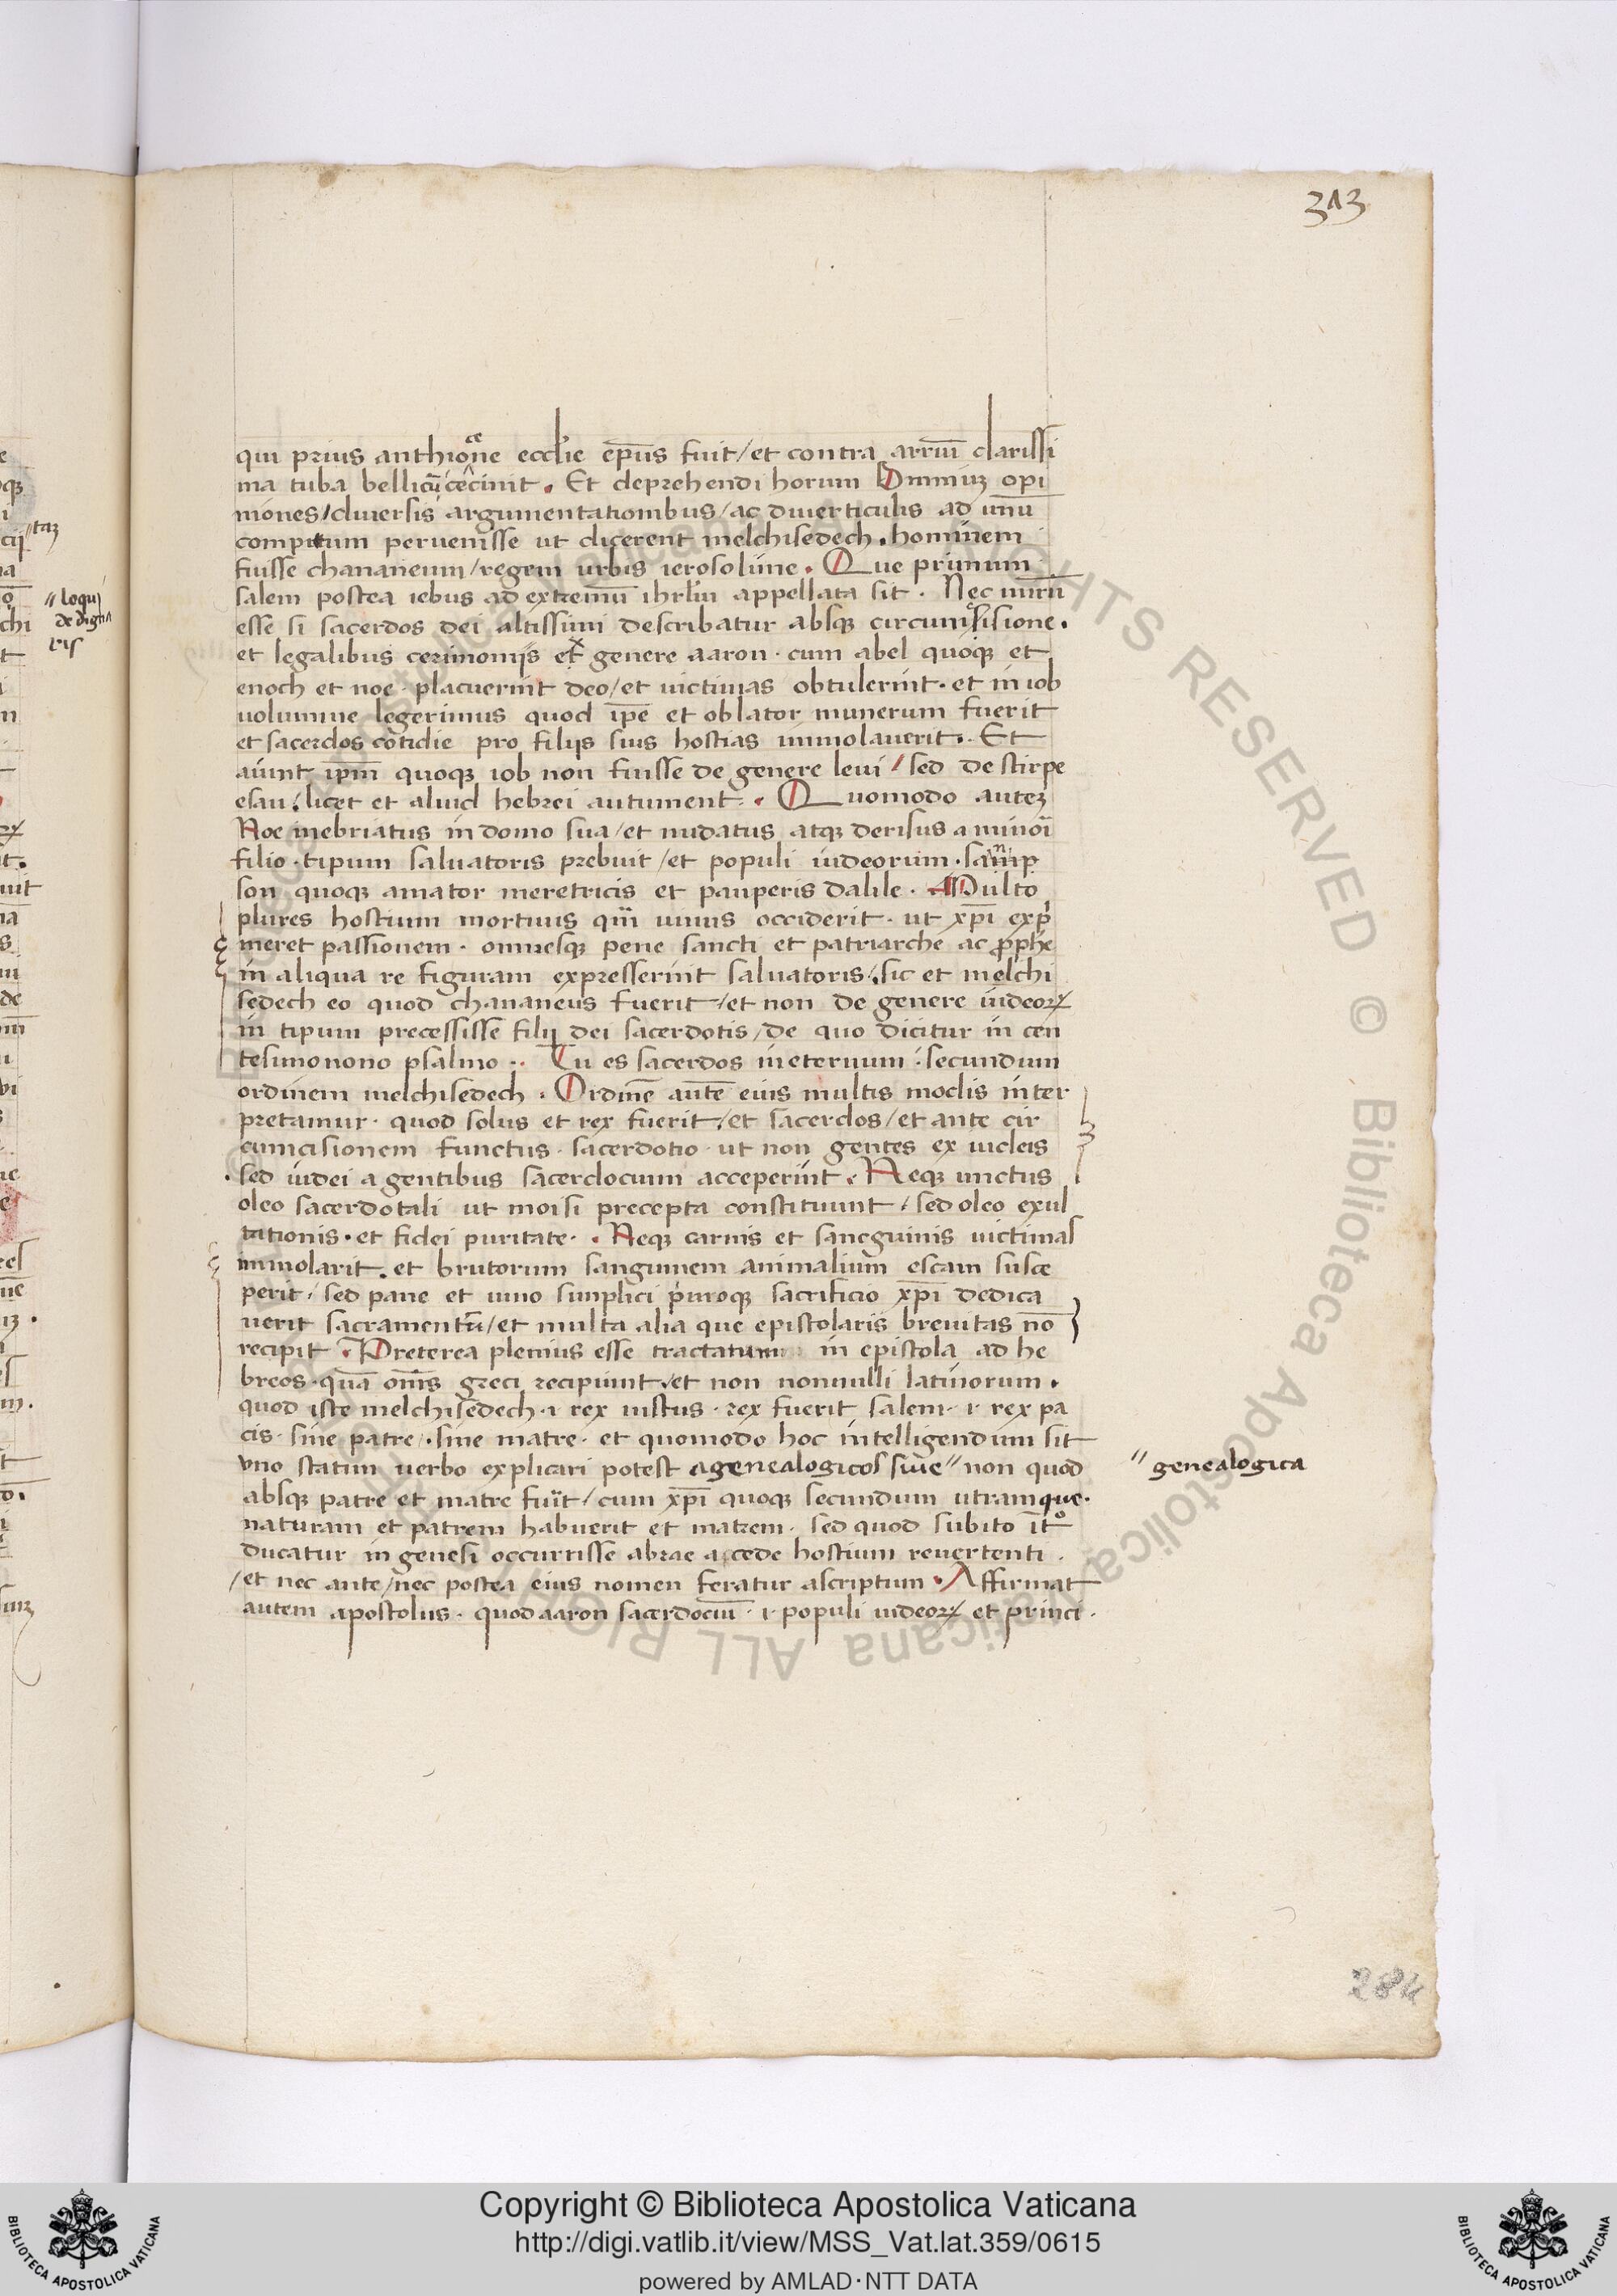 313
qui prius anthione ecclīe ep̄us fuit/et contra arriū clarissi
ma tuba bellicū cecinit. Et deprehendi horum Omniuz opi
niones/diuersis argumentationibus/ac diuerticulis ad unū
compitum peruenisse ut dicerent melchisedech. hominem
fuisse chananeum/regem urbis ierosolime. Que primum
salem postea iebus ad extremū ihrl̄m appellata sit. Nec mirū
esse si sacerdos dei altissimi describatur absqꝫ circumsisione.
et legalibus cerimoniis et genere aaron. cum abel quoqꝫ et
enoch et noe placuerint deo/et uictimas obtulerint. et in iob
uolumine legerimus quod ip̄e et oblator munerum fuerit
et sacerdos cotidie pro filiis suis hostias immolauerit. Et
aiunt ip̄m quoqꝫ iob non fuisse de genere leui/sed de stirpe
esau/licet et aluid hebrei autument. Quomodo autez
Noe inebriatus in domo sua/et nudatus atqꝫ derisus a minori
filio. tipum saluatoris prebuit/et populi iudeorum. samp
son quoqꝫ amator meretricis et pauperis dalile. Multo
plures hostium mortuus qm̄ uiuus occiderit. ut xp̄i expri
meret passionem. omnesqꝫ pene sancti et patriarche ac prophe
in aliqua re figuram expresserint saluatoris/sic et melchi
sedech eo quod chananeus fuerit/et non de genere iudeoꝝ
in tipum precessisse filij dei sacerdotis/de quo dicitur in cen
tesimonono psalmo. Tu es sacerdos in eternum: secundum
ordinem melchisedech. Ordinē autē eius multis modis inter
pretamur. quod solus et rex fuerit/et sacerdos/et ante cir
cumcisionem functus. sacerdotio. ut non gentes ex iudeis
sed iudei a gentibus sacerdocium acceperint. Neqꝫ unctus
oleo sacerdotali ut moisi precepta constituunt/sed oleo exul
tationis. et fidei puritate. Neqꝫ carnis et sancguinis uictimas
immolarit. et brutorum sanguinem animalium escam susce
perit/sed pane et uino simplici puroqꝫ sacrificio xp̄i dedica
uerit sacramentū/et multa alia que epistolaris breuitas nō
recipit. Preterea plenius esse tractatum in epistola ad he
breos. quā om̄s greci recipiunt et non nonnulli latinorum.
quod iste melchisedech .i. rex iustus. rex fuerit salem .i. rex pa
cis. sine patre. sine matre. et quomodo hoc intelligendum sit
vno statim uerbo explicari potest agenealogicos siue" non quod
absqꝫ patre et matre fuit/cum xp̄i quoqꝫ secundum utramque.
naturam et patrem habuerit et matrem. sed quod subito īt°
ducatur in genesi occurrisse abrae a cede hostium reuertenti.
/et nec ante/nec postea eius nomen feratur ascriptum. Affirmat
autem apostolus. quod aaron sacerdociū .i. populi iudeoꝝ et princi.
" genealogica
284
" loqui
Copyright © Biblioteca Apostolica Vaticana
http://digi.vatlib.it/view/MSS_Vat.lat.359/0615
powered by AMLAD·NTT DATA
BIBLIOTECA APOSTOLICA VATICANA
BIBLIOTECA APOSTOLICA VATICANA